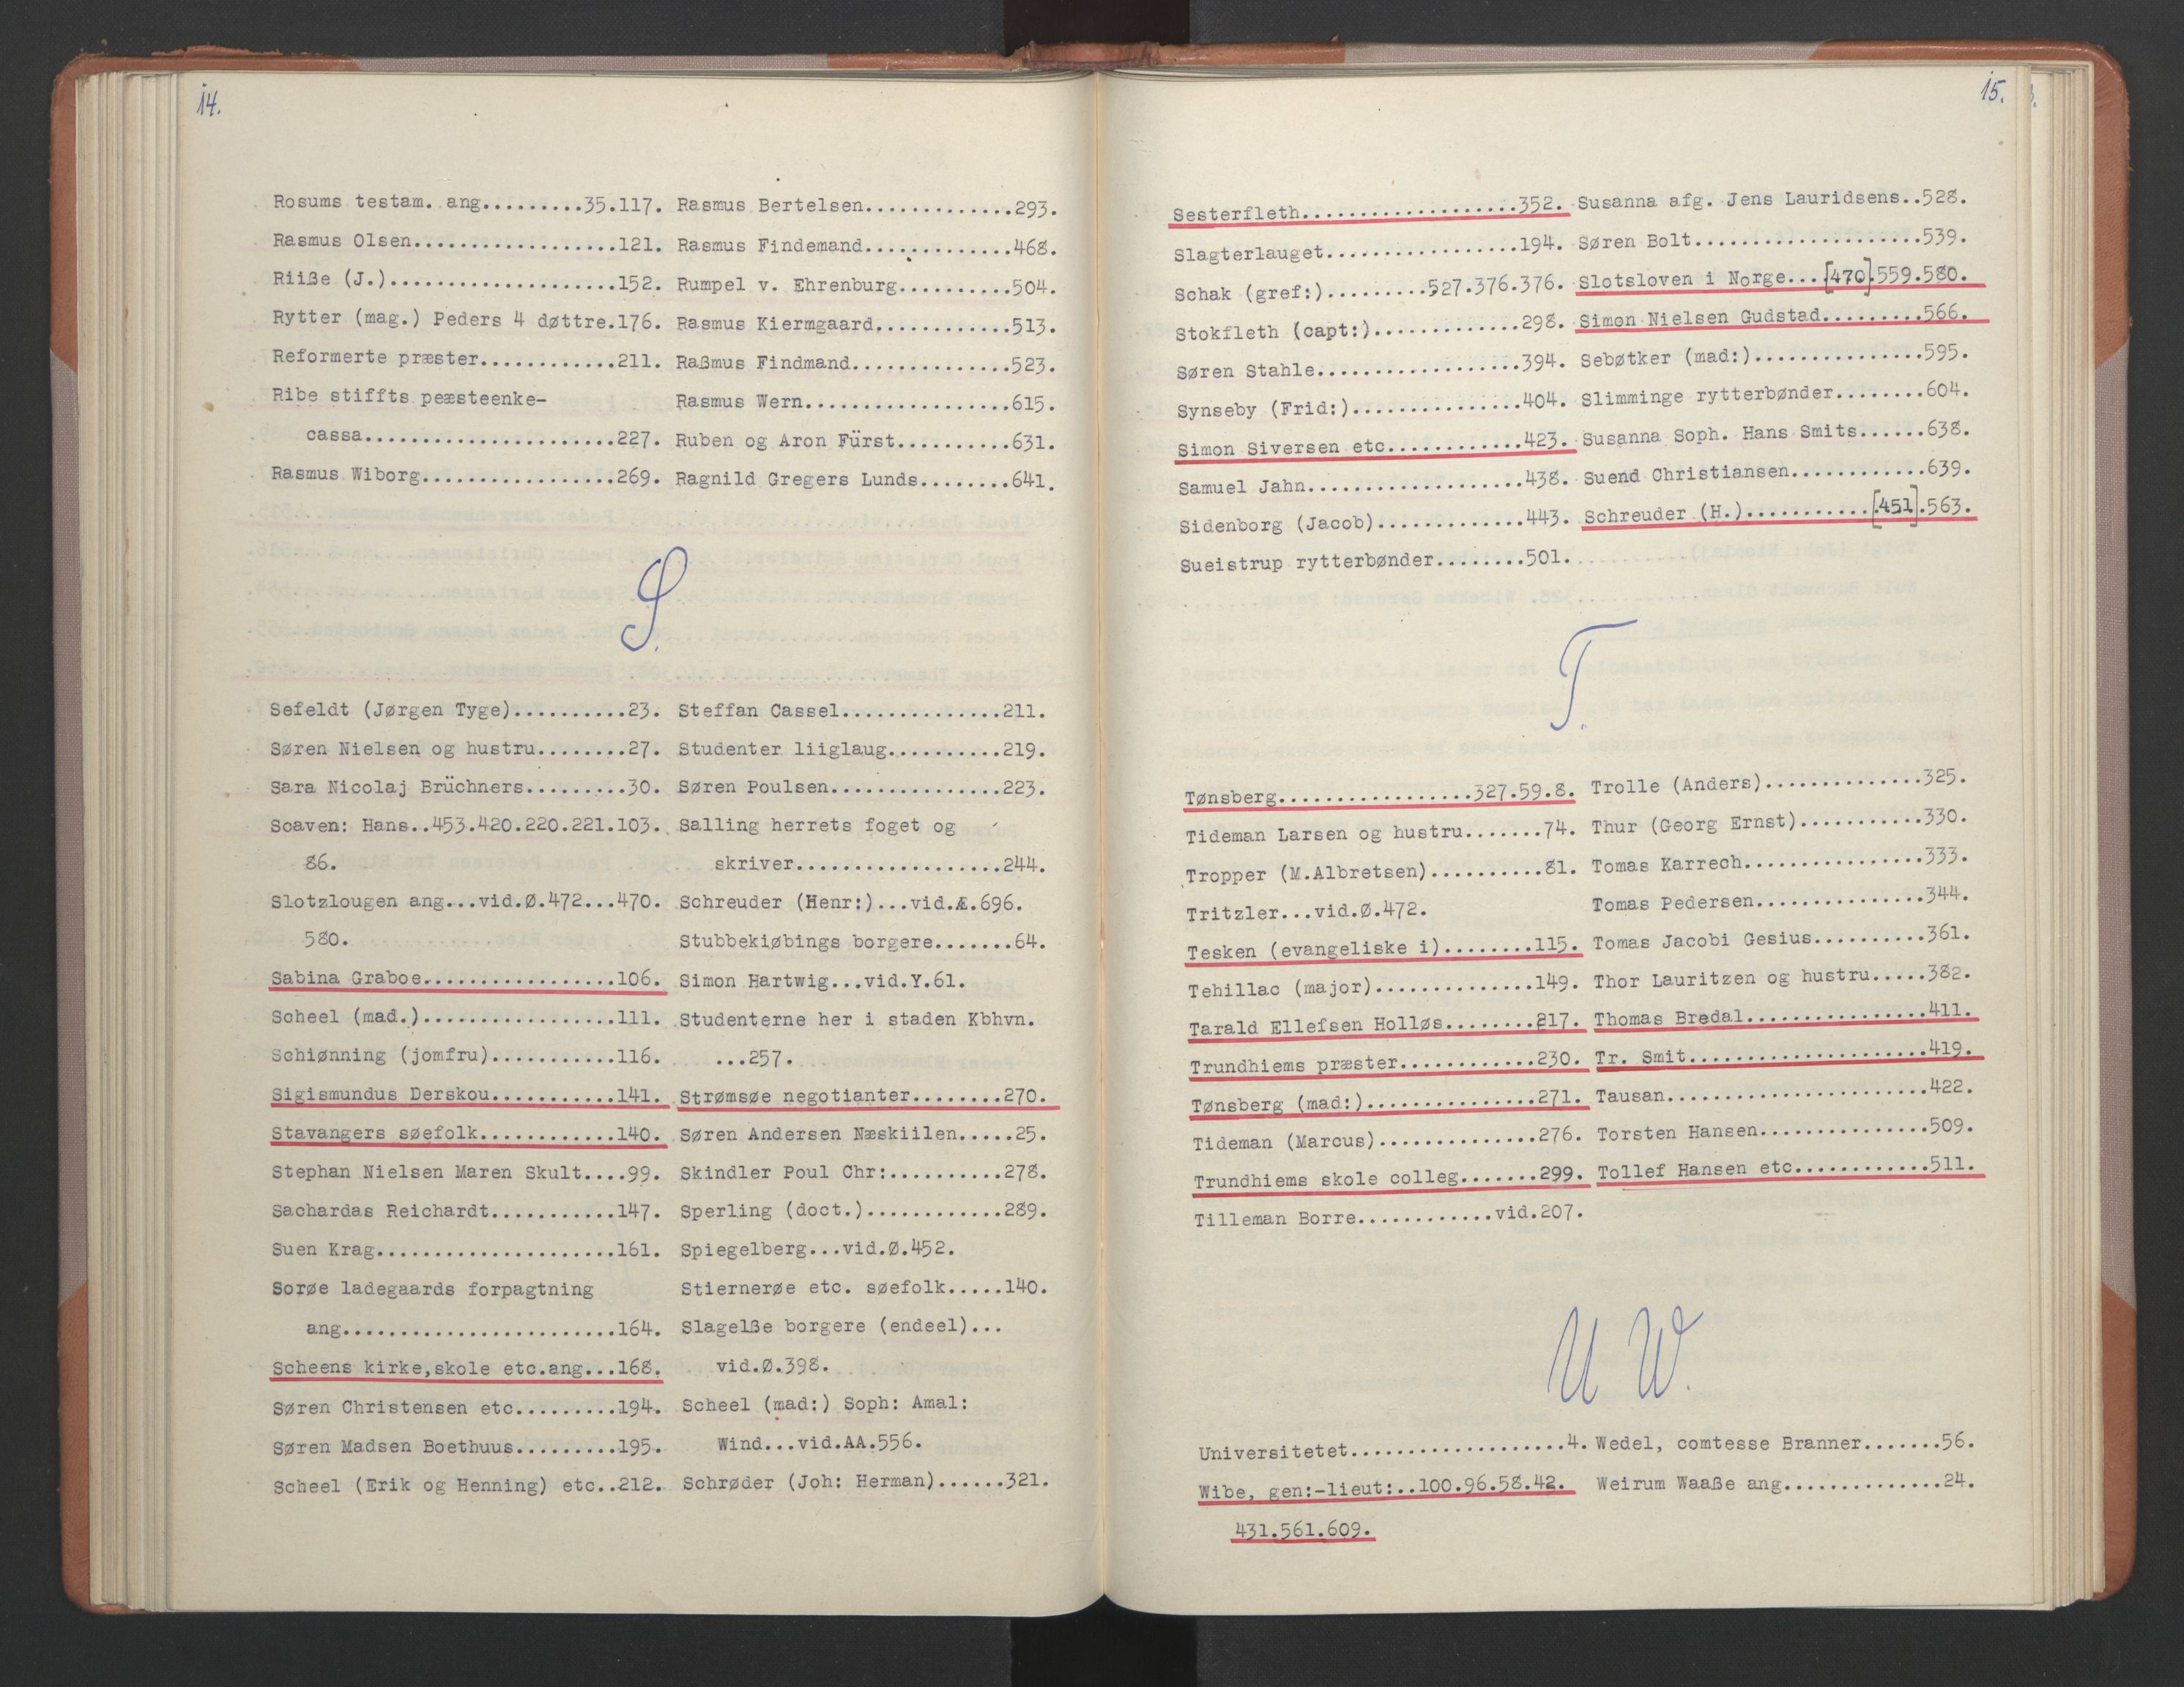 14.
Rosums testam. ang.........35.117.
Rasmus Olsen..................121.
Riiße (J.)....................152.
Rytter (mag.) Peders 4 døttre.176.
Reformerte præster............211.
Ribe stiffts peæsteenke-
cassa......................227.
Rasmus Wiborg.................269.
Rasmus Bertelsen.............293.
Rasmus Findemand.............468.
Rumpel v. Ehrenburg..........504.
Rasmus Kiermgaard............513.
Raßmus Findmand..............523.
Rasmus Wern..................615.
Ruben og Aron Fürst..........631.
Ragnild Gregers Lunds........641.
S.
Sefeldt (Jørgen Tyge)..........23.
Søren Nielsen og hustru........27.
Sara Nicolaj Brüchners.........30.
Scaven: Hans..453.420.220.221.103.
86.
Slotzlougen ang...vid.Ø.472...470.
580.
Sabina Graboe.................106.
Scheel (mad.).................111.
Schiønning (jomfru)...........116.
Sigismundus Derskou...........141.
Stavangers søefolk............140.
Stephan Nielsen Maren Skult....99.
Sachardas Reichardt...........147.
Suen Krag.....................161.
Sorøe ladegaards forpagtning
ang........................164.
Scheens kirke,skole etc.ang...168.
Søren Christensen etc.........194.
Søren Madsen Boethuus.........195.
Scheel (Erik og Henning) etc..212.
Steffan Cassel..............211.
Studenter liiglaug..........219.
Søren Poulsen...............223.
Salling herrets foget og
skriver..................244.
Schreuder (Henr:)...vid.Æ.696.
Stubbekiøbings borgere.......64.
Simon Hartwig...vid.Y.61.
Studenterne her i staden Kbhvn.
...257.
Strømsøe negotianter........270.
Søren Andersen Næskiilen.....25.
Skindler Poul Chr:..........278.
Sperling (doct.)............289.
Spiegelberg...vid.Ø.452.
Stiernerøe etc. søefolk.....140.
Slagelße borgere (endeel)...
vid.Ø.398.
Scheel (mad:) Soph: Amal:
Wind...vid.AA.556.
Schrøder (Joh: Herman)......321.
15.
Sesterfleth...................352.
Slagterlauget.................194.
Schak (gref:).........527.376.376.
Stokfleth (capt:).............298.
Søren Stahle..................394.
Synseby (Frid:)...............404.
Simon Siversen etc............423.
Samuel Jahn...................438.
Sidenborg (Jacob).............443.
Sueistrup rytterbønder........501.
Susanna afg. Jens Lauridsens..528.
Søren Bolt....................539.
Slotsloven i Norge...[470].559.580.
Simon Nielsen Gudstad.........566.
Sebøtker (mad:)...............595.
Slimminge rytterbønder........604.
Susanna Soph. Hans Smits......638.
Suend Christiansen............639.
Schreuder (H.)...........[451].563.
T.
Tønsberg.................327.59.8.
Tideman Larsen og hustru.......74.
Tropper (M.Albretsen)..........81.
Tritzler...vid.Ø.472.
Tesken (evangeliske i)........115.
Tehillac (major)..............149.
Tarald Ellefsen Holløs........217.
Trundhiems præster............230.
Tønsberg (mad:)...............271.
Tideman (Marcus)..............276.
Trundhiems skole colleg.......299.
Tilleman Borre............vid.207.
Trolle (Anders)..............325.
Thur (Georg Ernst)...........330.
Tomas Karrech................333.
Tomas Pedersen...............344.
Tomas Jacobi Gesius..........361.
Thor Lauritzen og hustru.....382.
Thomas Bredal................411.
Tr. Smit.....................419.
Tausan.......................422.
Torsten Hansen...............509.
Tollef Hansen etc............511.
U W.
Universitetet...................4.
Wibe, gen:-lieut:..100.96.58.42.
431.561.609.
Wedel, comtesse Branner.......56.
Weirum Waaße ang..............24.